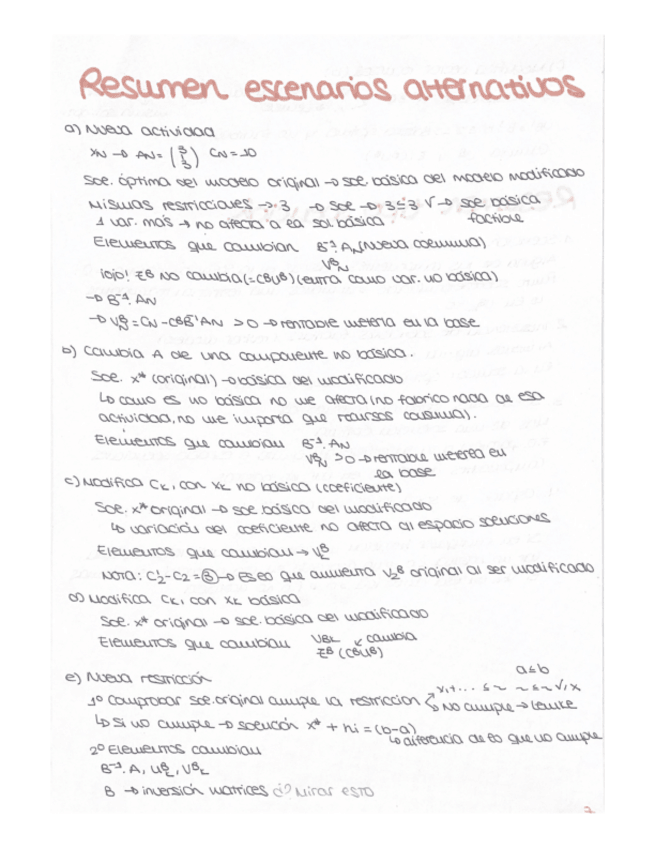 Resumen escenarios alternativos
a) Nueva actividad
xN → AN = (3 1 3) CN = 10
Soe. óptima del modelo original → soe básica del modelo modificado
Mismas restricciones → 3 → soe → 3≤3 √ → soe básica
1 var. más → no afecta a la sol. básica factible
Elementos que cambian B⁻¹.AN (nueva columna)
VᴮN
¡ojo! zᴮ NO cambia (=CᴮUᴮ) (entra como var. no básica)
→ B⁻¹.AN
→ VᴮN = CN - CᴮB⁻¹AN > 0 → rentable meterla en la base.
b) Cambia A de una componente no básica.
Soe. x* (original) → básica del modificado
↳ como es no básica no me afecta (no fabrico nada de esa
actividad, no me importa que recursos consuma).
Elementos que cambian B⁻¹.AN
VᴮN > 0 → rentable meterla en
la base
c) Modifica CK, con xK no básica (coeficiente)
Soe. x* original → soe. básica del modificado
↳ variación del coeficiente no afecta al espacio soluciones
Elementos que cambian → VᴮK
Nota: C'2 - C2 = ③ → Es lo que aumenta V2ᴮ original al ser modificado
d) Modifica CK, con xK básica
Soe. x* original → soe. básica del modificado
Elementos que cambian VᴮK cambia
zᴮ (CᴮUᴮ)
e) Nueva restricción
a≤b
1º Comprobar soe. original cumple la restricción
No cumple → Lemke
↳ Si no cumple → solución x* + hi = (b-a)
↳ diferencia de lo que no cumple
2º Elementos cambian
B⁻¹.A, UᴮK, VᴮK
B → inversión matrices ¿? Mirar esto